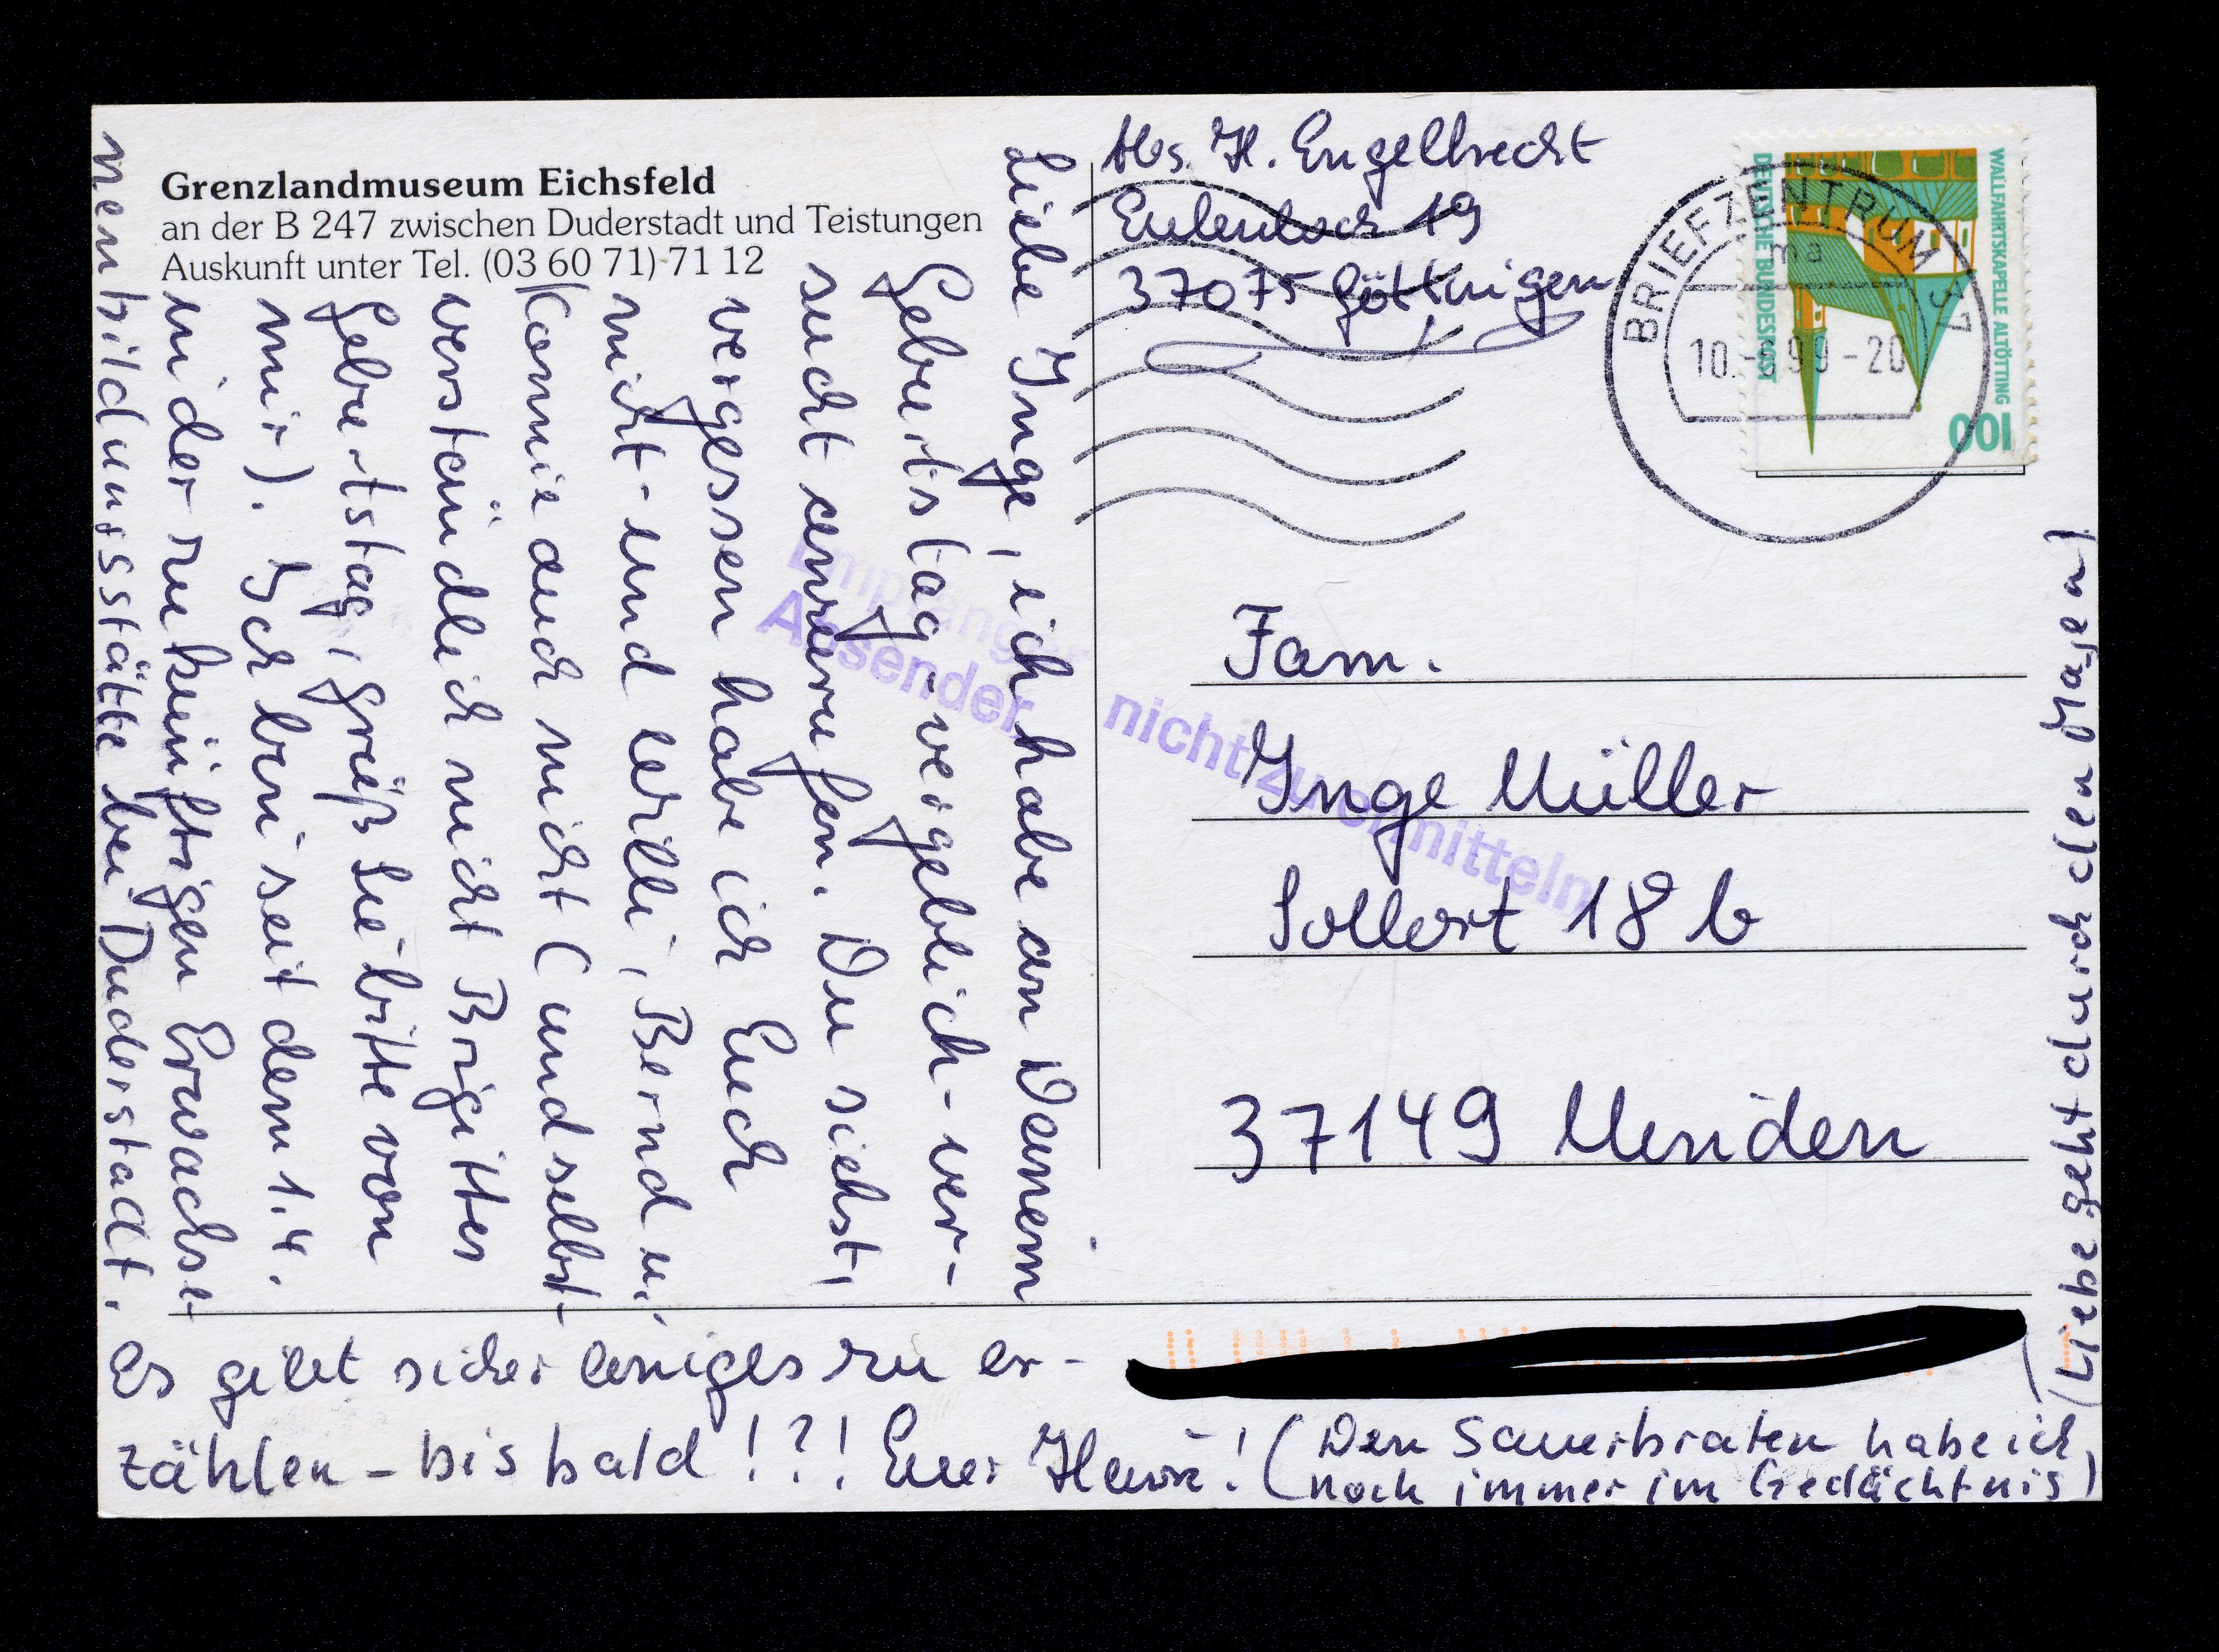 Grenzlandmuseum Eichsfeld
an der B 247 zwischen Duderstadt und Teistungen
Auskunft unter Tel. (03 60 71) 71 12
Liebe Inge, ich habe an Deinem
Geburtstag - vergeblich - ver-
sucht anzurufen. Du siehst,
vergessen habe ich Euch
nicht - und Willi, Bernd u.
Connie auch nicht (und selbst-
verständlich nicht Brigittes
Geburtstag, grüß sie bitte von
mir). Ich bin seit dem 1.4.
in der zukünftigen Erwachse-
nenbildungsstätte bei Duderstadt.
Es gibt sicher einiges zu er-
zählen - bis bald!?! Euer
! (Den Sauerbraten habe ich
noch immer im Gedächtnis)
(Liebe geht durch den Magen)
Abs. H. Engelbrecht
Eulenloch 19
37075 Göttingen
DEUTSCHE BUNDESPOST
WALLFAHRTSKAPELLE ALTÖTTING
100
BRIEFZENTRUM 37
ma
10.-6.99-20
Empfänger
Absender nicht zu ermitteln
Fam.
Inge Müller
Sollort 18 b
37149 Minden